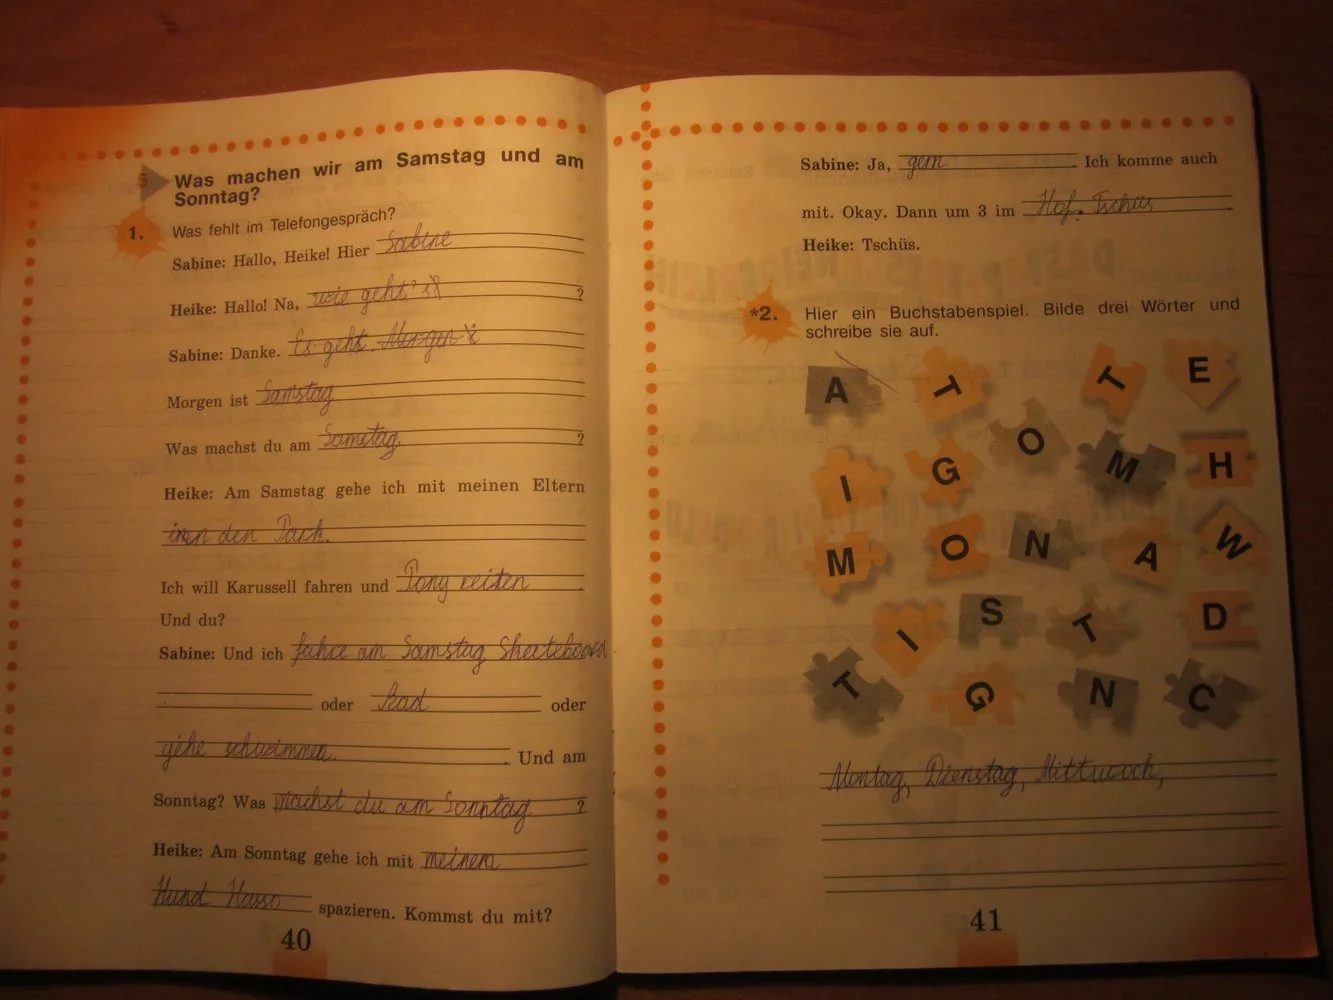 5 Was machen wir am Samstag und am
Sonntag?
1. Was fehlt im Telefongespräch?
Sabine: Hallo, Heike! Hier Sabine
Heike: Hallo! Na, wie geht's ?
Sabine: Danke. Es geht. Morgen
Morgen ist Samstag
Was machst du am Samstag ?
Heike: Am Samstag gehe ich mit meinen Eltern
in den Park.
Ich will Karussell fahren und Pony reiten .
Und du?
Sabine: Und ich fahre am Samstag Skateboard
oder Rad oder
gehe schwimmen. . Und am
Sonntag? Was machst du am Sonntag ?
Heike: Am Sonntag gehe ich mit meinem
Hund Hasso spazieren. Kommst du mit?
40
Sabine: Ja, gern Ich komme auch
mit. Okay. Dann um 3 im Hof. Tschüs
Heike: Tschüs.
*2. Hier ein Buchstabenspiel. Bilde drei Wörter und
schreibe sie auf.
A T T E
I G O M H
M O N A W
I S T D
T G N C
Montag, Dienstag, Mittwoch,
41